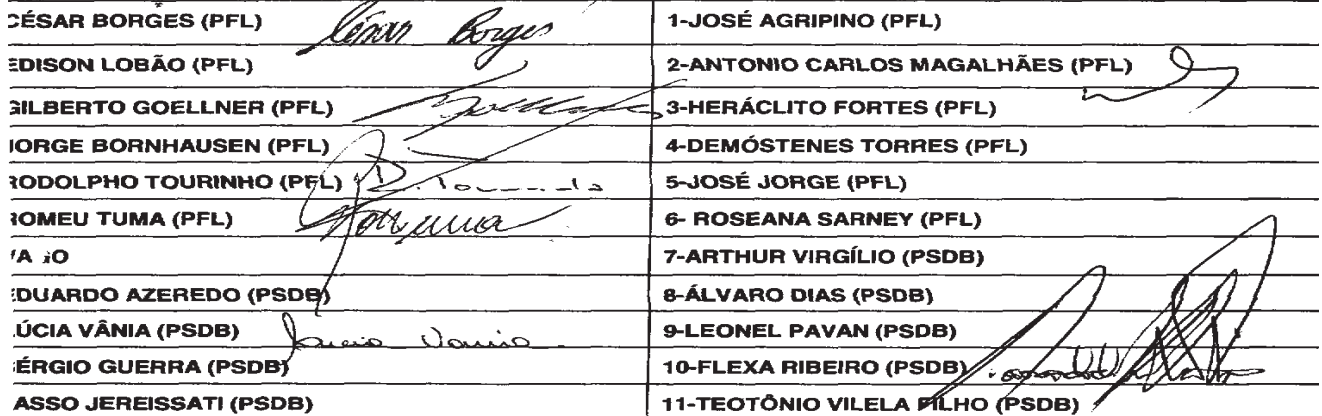 CÉSAR BORGES (PFL) César Borges 1-JOSÉ AGRIPINO (PFL)
EDISON LOBÃO (PFL) 2-ANTONIO CARLOS MAGALHÃES (PFL)
GILBERTO GOELLNER (PFL) 3-HERÁCLITO FORTES (PFL)
JORGE BORNHAUSEN (PFL) 4-DEMÓSTENES TORRES (PFL)
RODOLPHO TOURINHO (PFL) 5-JOSÉ JORGE (PFL)
ROMEU TUMA (PFL) 6- ROSEANA SARNEY (PFL)
7-ARTHUR VIRGÍLIO (PSDB)
EDUARDO AZEREDO (PSDB) 8-ÁLVARO DIAS (PSDB)
LÚCIA VÂNIA (PSDB) Lucia Vania 9-LEONEL PAVAN (PSDB)
SÉRGIO GUERRA (PSDB) 10-FLEXA RIBEIRO (PSDB)
ASSO JEREISSATI (PSDB) 11-TEOTÔNIO VILELA FILHO (PSDB)